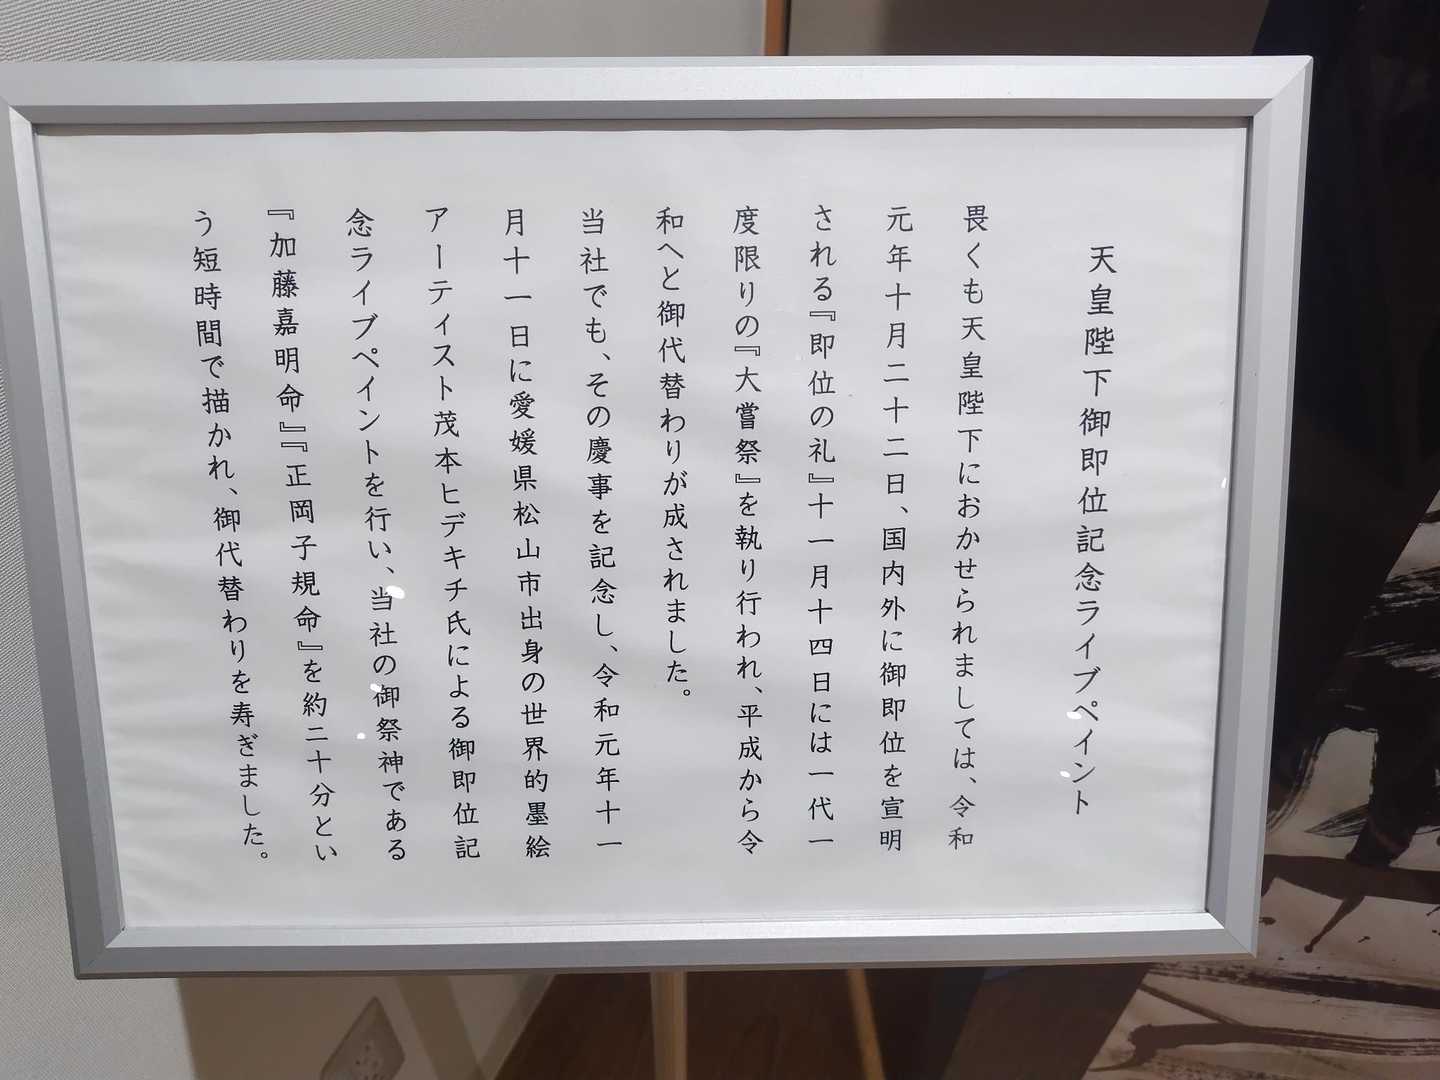 天皇陛下御即位記念ライブペイント
畏くも天皇陛下におかせられましては、令和
元年十月二十二日、国内外に御即位を宣明
される『即位の礼』十一月十四日には一代一
度限りの『大嘗祭』を執り行われ、平成から令
和へと御代替わりが成されました。
当社でも、その慶事を記念し、令和元年十一
月十一日に愛媛県松山市出身の世界的墨絵
アーティスト茂本ヒデキチ氏による御即位記
念ライブペイントを行い、当社の御祭神である
『加藤嘉明命』『正岡子規命』を約二十分とい
う短時間で描かれ、御代替わりを寿ぎました。